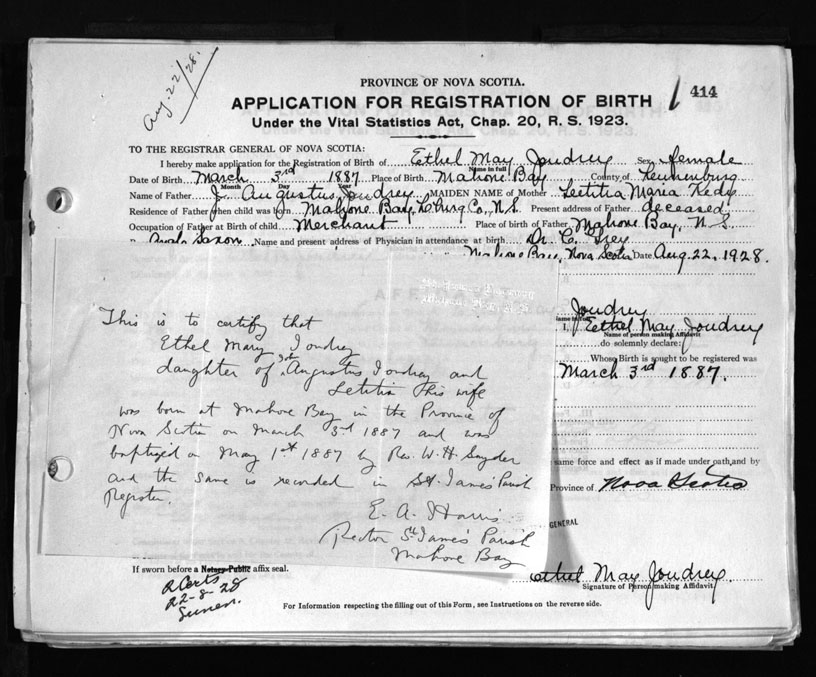 Aug. 22/28.
PROVINCE OF NOVA SCOTIA.
414
APPLICATION FOR REGISTRATION OF BIRTH
Under the Vital Statistics Act, Chap. 20, R. S. 1923.
TO THE REGISTRAR GENERAL OF NOVA SCOTIA:
I hereby make application for the Registration of Birth of Ethel May Joudrey Sex female
Name in full
Date of Birth March 3rd 1887. Place of Birth Mahone Bay County of Lunenburg
Month Day Year
Name of Father J. Augustus Joudrey MAIDEN NAME of Mother Letitia Maria Kedy
Residence of Father when child was born Mahone Bay, L'burg Co., N.S. Present address of Father deceased
Occupation of Father at Birth of child Merchant Place of birth of Father Mahone Bay, N.S.
Saxon Name and present address of Physician in attendance at birth Dr. C. Grey
Mahone Bay, Nova Scotia Date Aug. 22, 1928.
This is to certify that
Ethel Mary Joudrey
daughter of Jno. Augustus Joudrey and
Letitia his wife
was born at Mahone Bay in the Province of
Nova Scotia on March 3rd 1887 and was
baptized on May 1st 1887 by Rev. W. H. Snyder
and the same is recorded in St. James' Parish
Register.
E. A. Harris
Rector St James' Parish
Mahone Bay
Joudrey
I, Ethel May Joudrey
Name of person making Affidavit
do solemnly declare:
Whose Birth is sought to be registered was
March 3rd 1887.
same force and effect as if made under oath, and by
Province of Nova Scotia
GENERAL
If sworn before a Notary Public affix seal.
2 Certs
22-8-28
Ethel May Joudrey.
Signature of Person making Affidavit
For Information respecting the filling out of this Form, see Instructions on the reverse side.